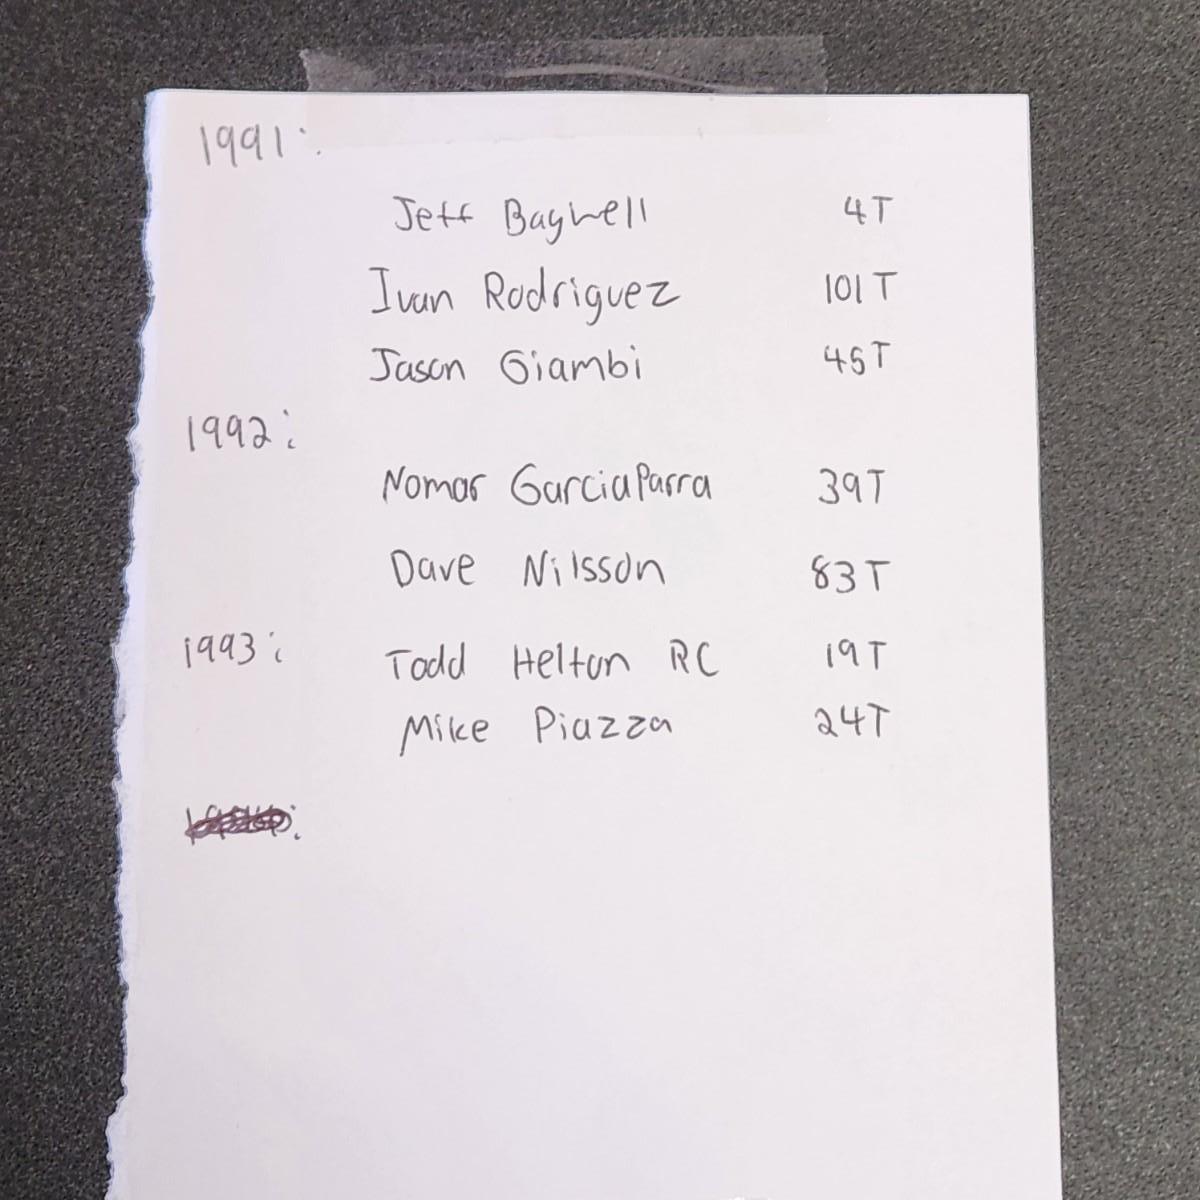 1991:
Jeff Bagwell 4T
Ivan Rodriguez 101T
Jason Giambi 45T
1992:
Nomar GarciaParra 39T
Dave Nilsson 83T
1993: Todd Helton RC 19T
Mike Piazza 24T